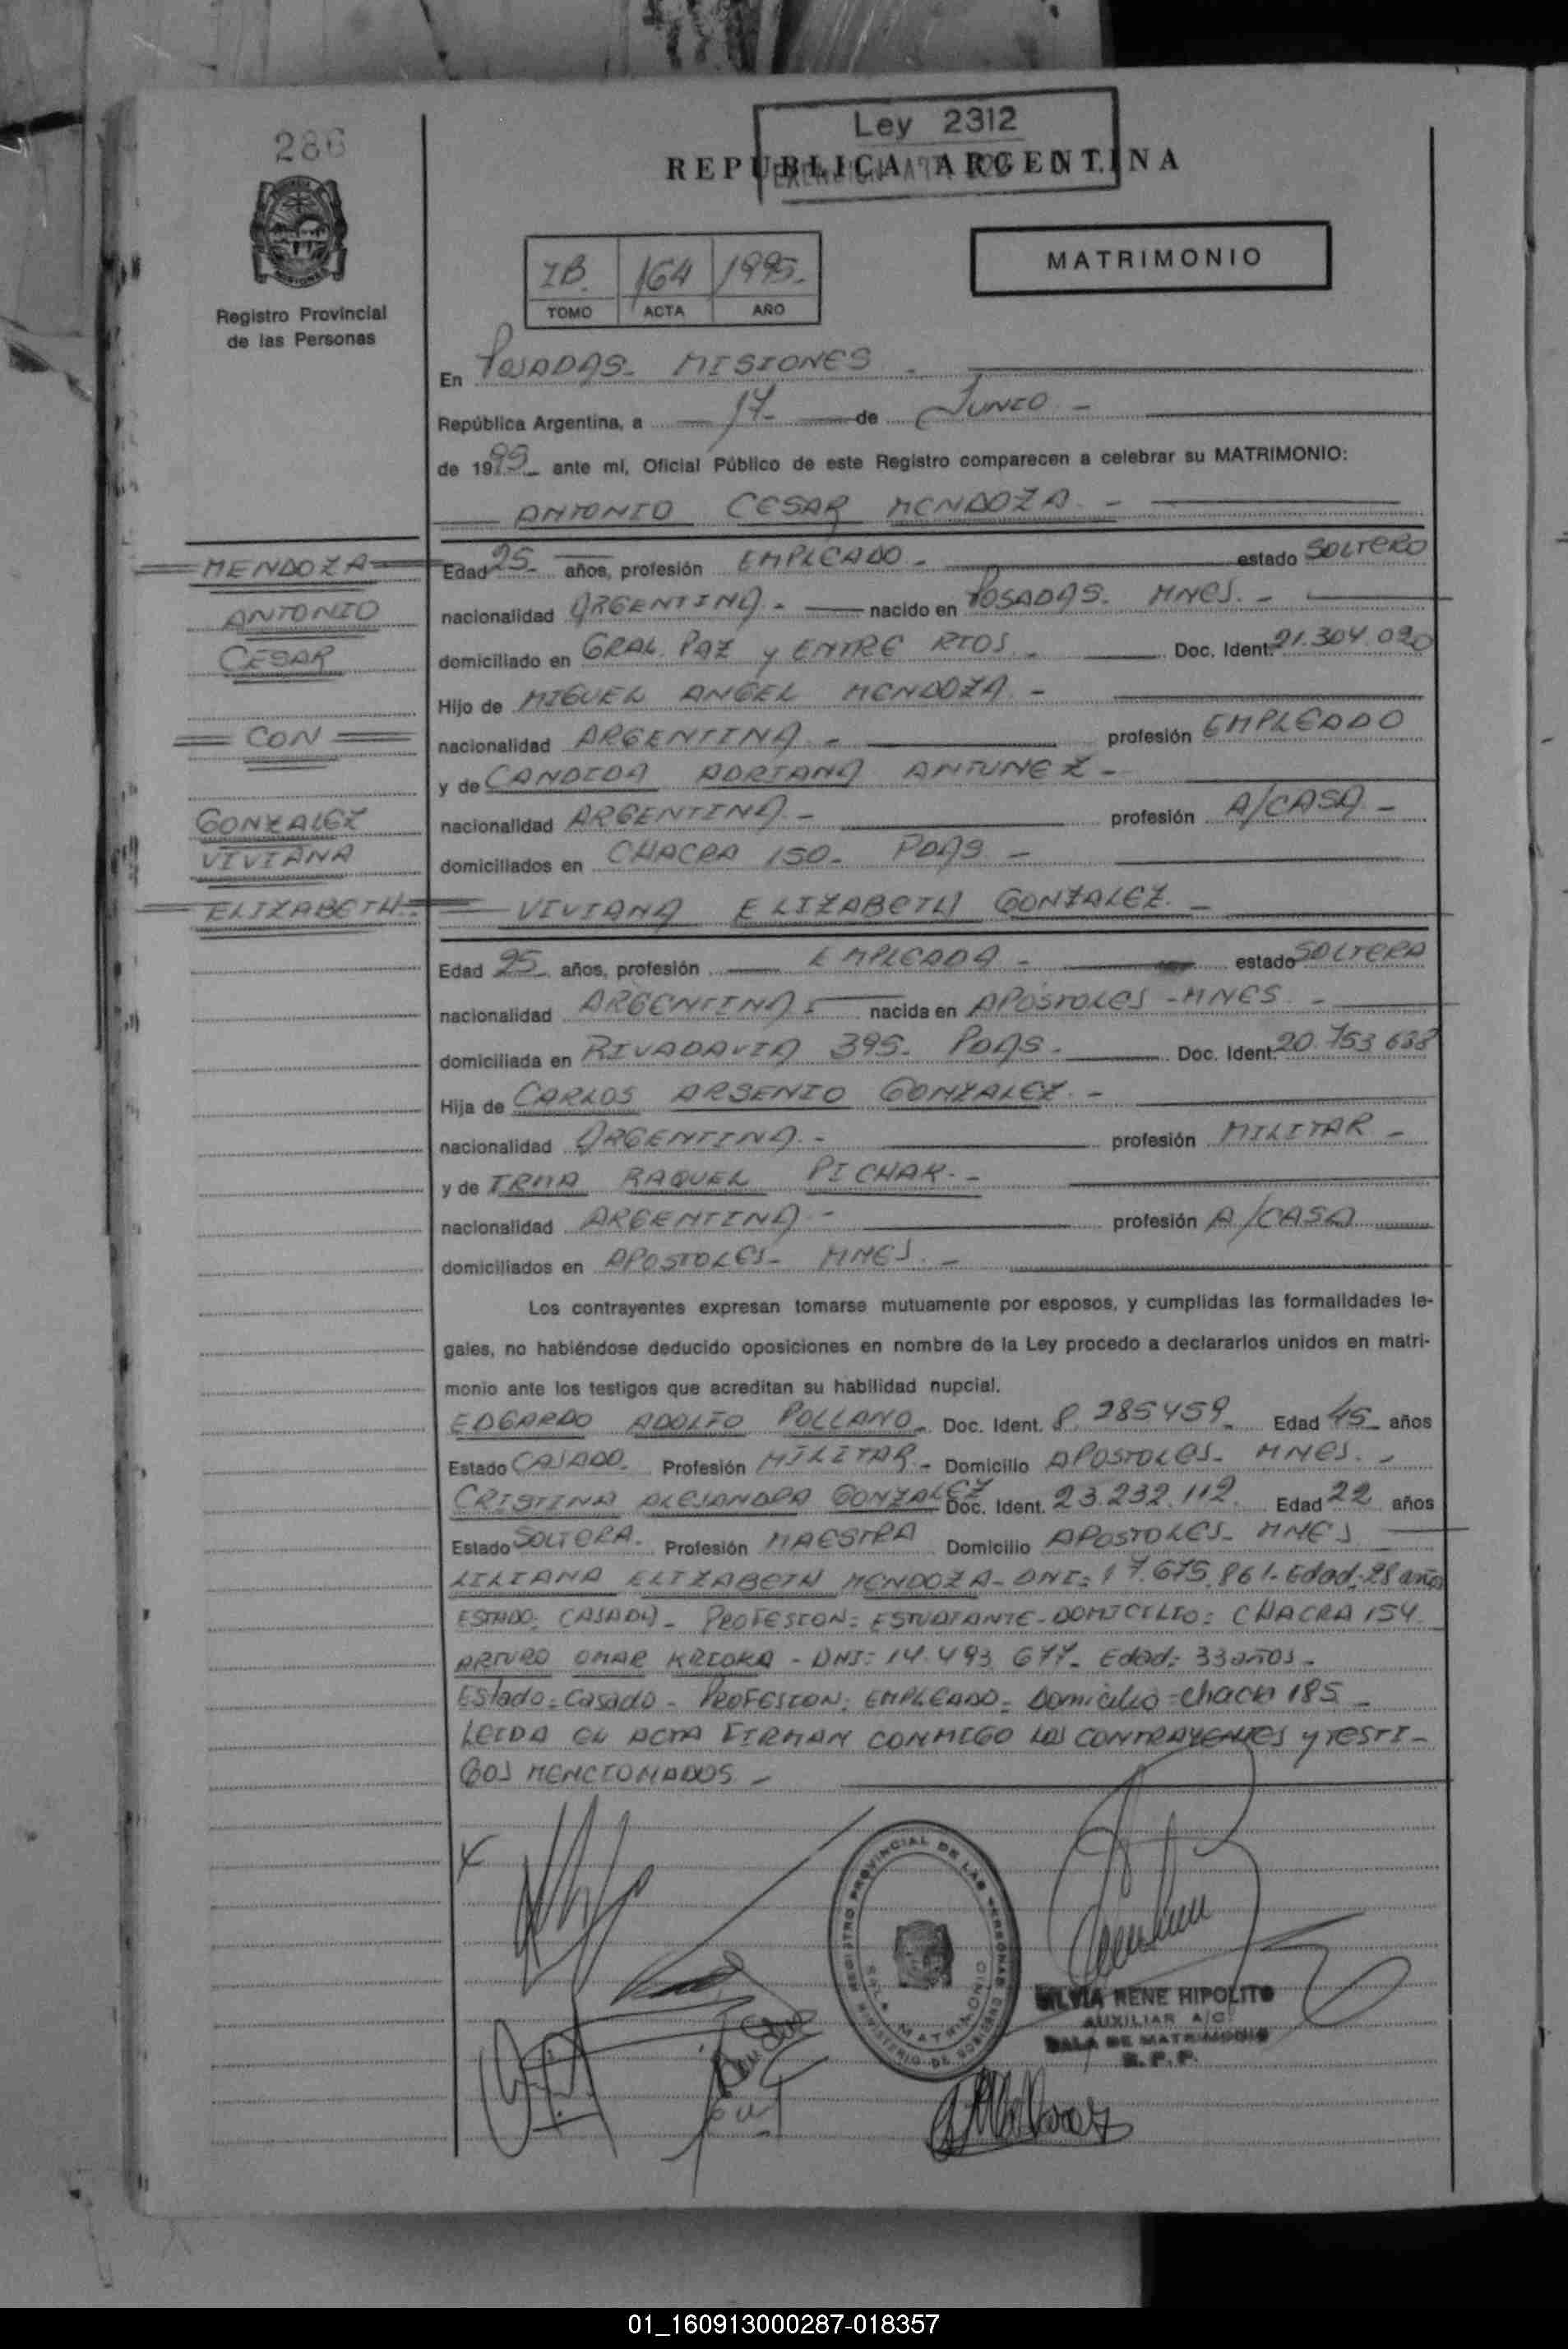 286
Ley 2312
REPUBLICA ARGENTINA
Registro Provincial
de las Personas
MATRIMONIO
164 1995.
TOMO ACTA AÑO
En POSADAS- MISIONES.
República Argentina, a 17- de JUNIO -
de 1995 ante mí, Oficial Público de este Registro comparecen a celebrar su MATRIMONIO:
ANTONIO CESAR MENDOZA -
MENDOZA
ANTONIO
CESAR
CON
GONZALEZ
VIVIANA
ELIZABETH
Edad 25- años, profesión EMPLEADO - estado SOLTERO
nacionalidad ARGENTINA - nacido en POSADAS- MNES. -
domiciliado en GRAL. PAZ y ENTRE RIOS. Doc. Ident. 21.304.090
Hijo de MIGUEL ANGEL MENDOZA -
nacionalidad ARGENTINA - profesión EMPLEADO
y de CANDIDA ADRIANA ANTUNEZ -
nacionalidad ARGENTINA - profesión A/CASA -
domiciliados en CHACRA 150- PDAS -
VIVIANA ELIZABETH GONZALEZ. -
Edad 25 años, profesión EMPLEADA - estado SOLTERA
nacionalidad ARGENTINA - nacida en APOSTOLES -MNES. -
domiciliada en RIVADAVIA 395- PDAS. Doc. Ident. 20.753.638
Hija de CARLOS ARSENIO GONZALEZ -
nacionalidad ARGENTINA - profesión MILITAR -
y de IRMA RAQUEL PICHAK. -
nacionalidad ARGENTINA - profesión A/CASA
domiciliados en APOSTOLES- MNES. -
Los contrayentes expresan tomarse mutuamente por esposos, y cumplidas las formalidades le-
gales, no habiéndose deducido oposiciones en nombre de la Ley procedo a declararlos unidos en matri-
monio ante los testigos que acreditan su habilidad nupcial.
EDGARDO ADOLFO POLLANO- Doc. Ident. 8.285459- Edad 45- años
Estado CASADO. Profesión MILITAR- Domicilio APOSTOLES- MNES. -
CRISTINA ALEJANDRA GONZALEZ Doc. Ident. 23.232.112. Edad 22 años
Estado SOLTERA. Profesión MAESTRA Domicilio APOSTOLES- MNES
LILIANA ELIZABETH MENDOZA- DNI: 17.675.861- Edad: 28 años
ESTADO: CASADA- PROFESION: ESTUDIANTE- DOMICILIO: CHACRA 154
ARTURO OMAR KRIOKA - DNI: 14.493.677- Edad: 33 años-
Estado: Casado - PROFESION: EMPLEADO- Domicilio: chacra 185 -
LEIDA EL ACTA FIRMAN CONMIGO LOS CONTRAYENTES y TESTI-
GOS MENCIONADOS -
REGISTRO PROVINCIAL DE LAS PERSONAS
SALA MATRIMONIO
MINISTERIO DE GOBIERNO
SILVIA RENE HIPOLITO
AUXILIAR A/C
SALA DE MATRIMONIO
R. P. P.
01_160913000287-018357